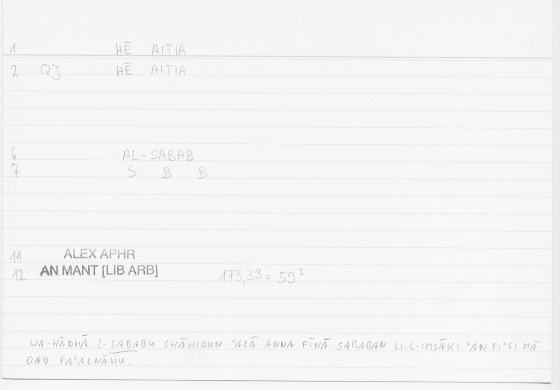 1 HĒ AITIA
2 QJ HĒ AITIA
6 AL-SABAB
7 S B B
11 ALEX APHR
12 AN MANT [LIB ARB] 173,33 = 59¹
WA-HĀDHĀ L-SABABU SHĀHIDUN ʿALĀ ANNA FĪNĀ SABABAN LI-L-IMSĀKI ʿAN FIʿLI MĀ
QAD FAʿALNĀHU.